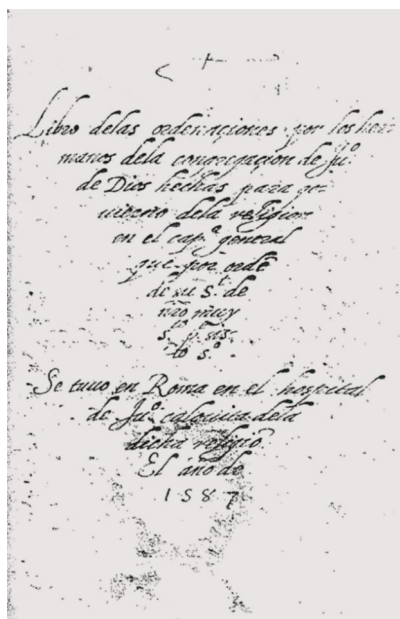 Libro delas ordenaçiones por los her-
manos dela congregaçion de Ju.º
de Dios hechas para go-
uierno dela religion
en el cap.º general
que por ordē
de su S.t de
nro muy
s.to p. sis-
to 5.º
Se tuuo en Roma en el hospital
de Ju.º calouita dela
dicha religiō
El año de
1587